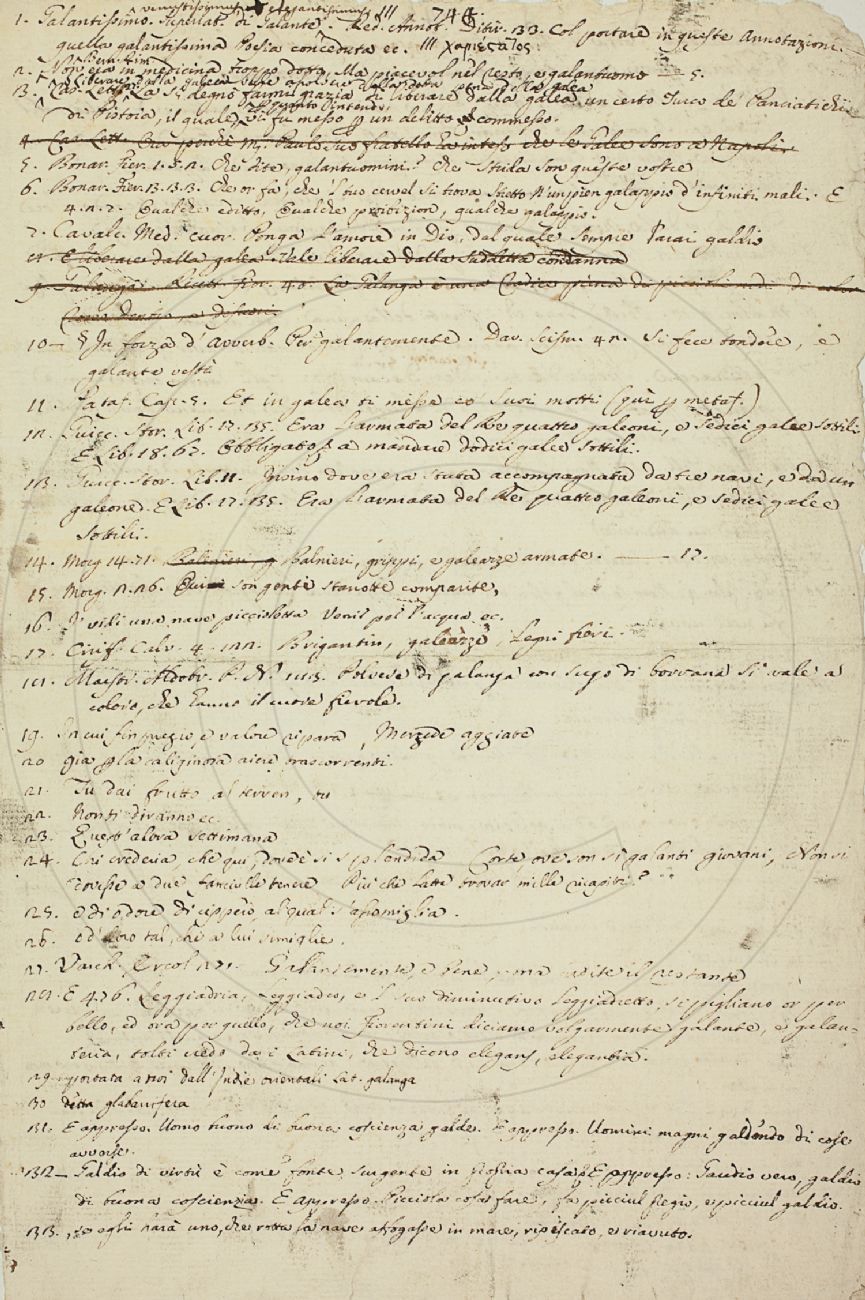 744.
1. Galantissimo. Superlat. di Galante. Red. Annot. Ditir. 133. Col portare in queste Annotazioni
quella galantissima Poesia conceduta ec. χαριέστατος
2. Non era in medicina troppo dotto, Ma piacevol nel resto, e galantuomo 5.
3. Cas. Lett. La S. Regno farmi grazia di liberare dalla galea un certo Turco de' Panciatichi
di Pistoia, il quale vi fu messo p un delitto commesso.
4. Cas. Lett. Era perchè M. Paulo suo fratello ha inteso che le Galee sono a Napoli.
5. Bonar. Fier. 1. 5. 2. Che dite, galantuomini? Che strida son queste vostre
6. Bonar. Fier. 3. 3. 3. Che or fa, che 'l tuo cervel si trova stretto 'n un pien galappio d'infiniti mali. E
4. 2. 7. Qualche editto, qualche proibizion, qualche galappio.
7. Cavalc. Med. cuor. Ponga l'amore in Dio, del quale sempre farai galdio
8. E liberare dalla galea. Vale liberare dalla suddetta condanna
9. Galanga. Ricett. Fior. 40. La Galanga è una radice piena di piccioli nodi di color
dentro, e difuori.
10 — § In forza d'Avverb. Per galantemente. Dav. Scism. 42. Si fece tondere, e
galante vestì
11. Pataf. Cap. 5. Et in galea ti messe co suoi motti (quì p metaf.)
12. Guicc. Stor. Lib. 17. 135. Era l'armata del Re quattro galeoni, e sedici galee sottili
E Lib. 18. 67. Obbligato a mandare dodici galee sottili.
13. Guicc. Stor. Lib. 11. Insino dove era stata accompagnata da tre navi, e da un
galeone. E Lib. 17. 135. Era l'armata del Re quattro galeoni, e sedici galee
sottili.
14. Morg. 14. 71. Balnieri, grippi, e galeazze armate. — 17.
15. Morg. 2. 26. Quì son gente stanotte comparite,
16. I' vidi una nave piccioletta Venir pel l'acqua ec.
17. Ciriff. Calv. 4. 122. Brigantin, galeazze, legni fieri.
18. Maestr. Aldobr. P. N. 183. Polvere di galanga con sugo di borrana si vale a
coloro, che hanno il cuore fievole.
19. In cui fin pregio, e valore ripara, Merzede aggiate
20 Già p la caliginosa aiere trascorrenti.
21. Tu dai frutto al terren, tu
22. Nonti diranno ec.
23. Quest'altra settimana
24. Chi crederia, che qui, dov'è sì splendida Corte, ove son sì galanti giovani, Non si
trovasse a due fanciulle tenere Più che latte trovar mille ricapiti?
25. e di odore di cipero, al qual s'assomiglia.
26. ed' loro tal, chi a lui simiglie.
27. Varch. Ercol. 271. Galantemente, e bene, ma udite il restante
28. E 476. Leggiadria, leggiadro, e 'l suo diminutivo leggiadretto, si pigliano or per
bello, ed ora per quello, che noi Fiorentini diciamo volgarmente galante, e galan-
teria, tolti credo da i Latini, che dicono elegans, elegantia.
29. portata a noi dall'Indie orientali Lat. galanga
30 detta glabanifera
31. E appresso. Uomo buono di buona coscienza galde. E appresso. Uomini magni galdendo di cose
avverse.
32 — Galdio di virtù è come fonte surgente in propria casa. E appresso: Gaudio vero, galdio
di buona coscienza. E appresso. Picciola cosa fare, fa picciul pregio, e picciul galdio.
33. se egli sarà uno, che rotta la nave affogasse in mare, ripescato, e riavuto.